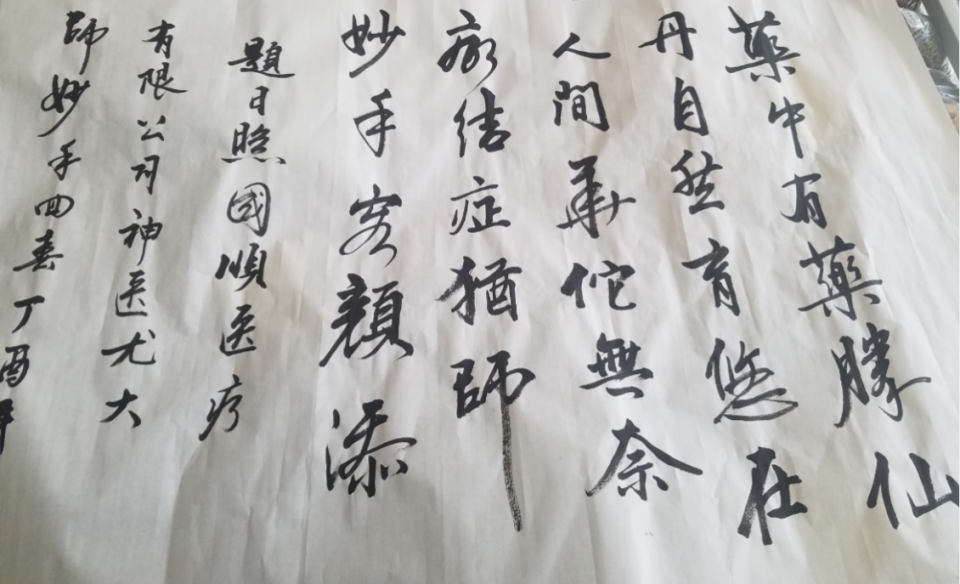 藥中有藥勝仙
丹自然育悠在
人間華佗無奈
结症猶師
妙手容顏添
題日照國順医疗
有限公司神医尤大
師妙手回春丁酉年